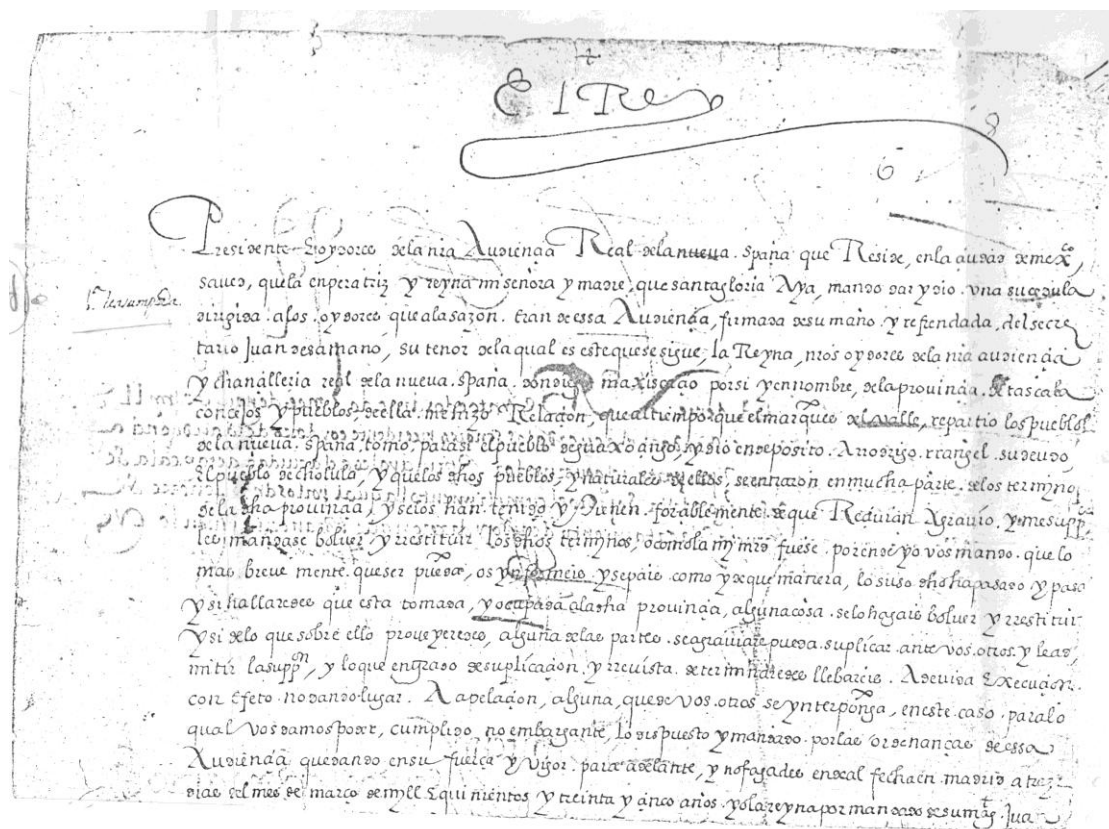 El Rey
Presidente E oydores de la nra Audiençia Real de la nueva spaña que Reside, en la çiudad de mexco,
saved, que la enperatriz y reyna mi señora y madre, que santa gloria Aya, mando dar y dio una su çedula
dirigida a los oydores que a la sazon eran de essa Audiençia, firmada de su mano y refrendada, del secre
tario Juan de samano, su tenor de la qual es este que se sigue, la Reyna, nros oydores de la nra audiençia
y chançilleria real de la nueva spaña don maxiscaçao por si y en nombre, de la provinçia de tascala
conçejos y pueblos de ella me hizo Relaçion, que al tiempo que el marques del valle, repartio los pueblos
de la nueva spaña, tomo, para si el pueblo de guaxoçingo, y dio en deposito A rrodrigo rrangel su deudo
el pueblo de cholula, y que los dhos pueblos, y naturales de ellos, se entraron en mucha parte de los termynos
de la dha provinçia, y se los han tenido y tienen forçiblemente de que Reçiuian Agrauio, y me suppco
les mandase boluer y rrestituir los dhos termynos, o como la my mrd fuese por ende yo vos mando que lo
mas breve mente que ser pueda, os ynformeis y sepais como y de que manera, lo suso dho ha pasado y pasa
y si hallaredes que esta tomada, y ocupada a la dha provinçia, alguna cosa se lo hagais bolver y rrestituir
y si de lo que sobre ello proveyeredes, alguna de las partes se agraviare pueda suplicar ante vos otros y le ad
mitir la suppon, y lo que en grado de suplicaçion y rrevista determinaredes llebareis A devida Execuçion
con Efeto no dando lugar A apelaçion, alguna, que de vos otros se ynterponga, en este caso para lo
qual vos damos poder, cumplido, no embargante, lo dispuesto y mandado por las ordenanças de essa
Audiençia quedando en su fuerça y vigor para adelante, y no fagades en dal fecha en madrid a trez
dias del mes de março de myll E quinientos y treinta y çinco años yo la reyna por mandado de su mag Jua